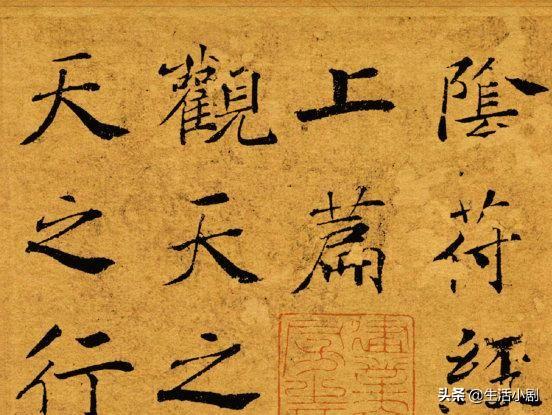 陰符經
上篇
觀天之
天之行
头条 @生活小剧